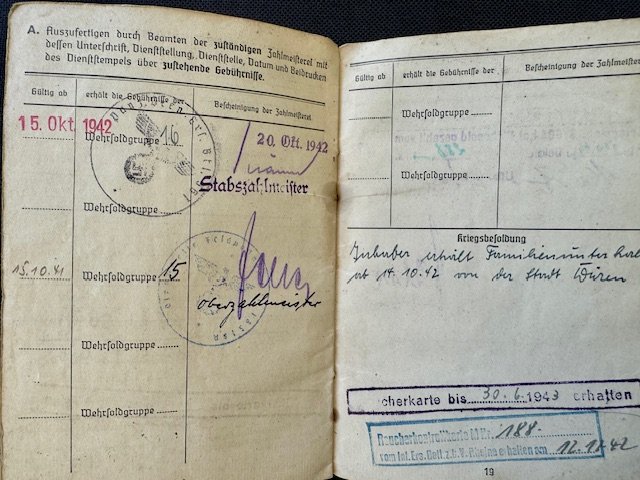 A. Auszufertigen durch Beamten der zuständigen Zahlmeisterei mit
dessen Unterschrift, Dienststellung, Dienststelle, Datum und Beidrucken
des Dienststempels über zustehende Gebührnisse.
Gültig ab
erhält die Gebührnisse der
Bescheinigung der Zahlmeisterei
15. Okt. 1942
Wehrsoldgruppe 16
20. Okt. 1942
Stabszahlmeister
Wehrsoldgruppe
15.10.41
Wehrsoldgruppe 15
Oberzahlmeister
Wehrsoldgruppe
Wehrsoldgruppe
Gültig ab
erhält die Gebührnisse der
Bescheinigung der Zahlmeisterei
Wehrsoldgruppe
Wehrsoldgruppe
Kriegsbesoldung
Inhaber erhält Familienunterhalt
ab 14.10.42 von der Stadt Düren
cherkarte bis 30.6.1943 erhalten
Raucherkontrollkarte M Nr. 188
vom Inf. Ers. Batl. z.b.V. Rheine erhalten am 12.11.42
19